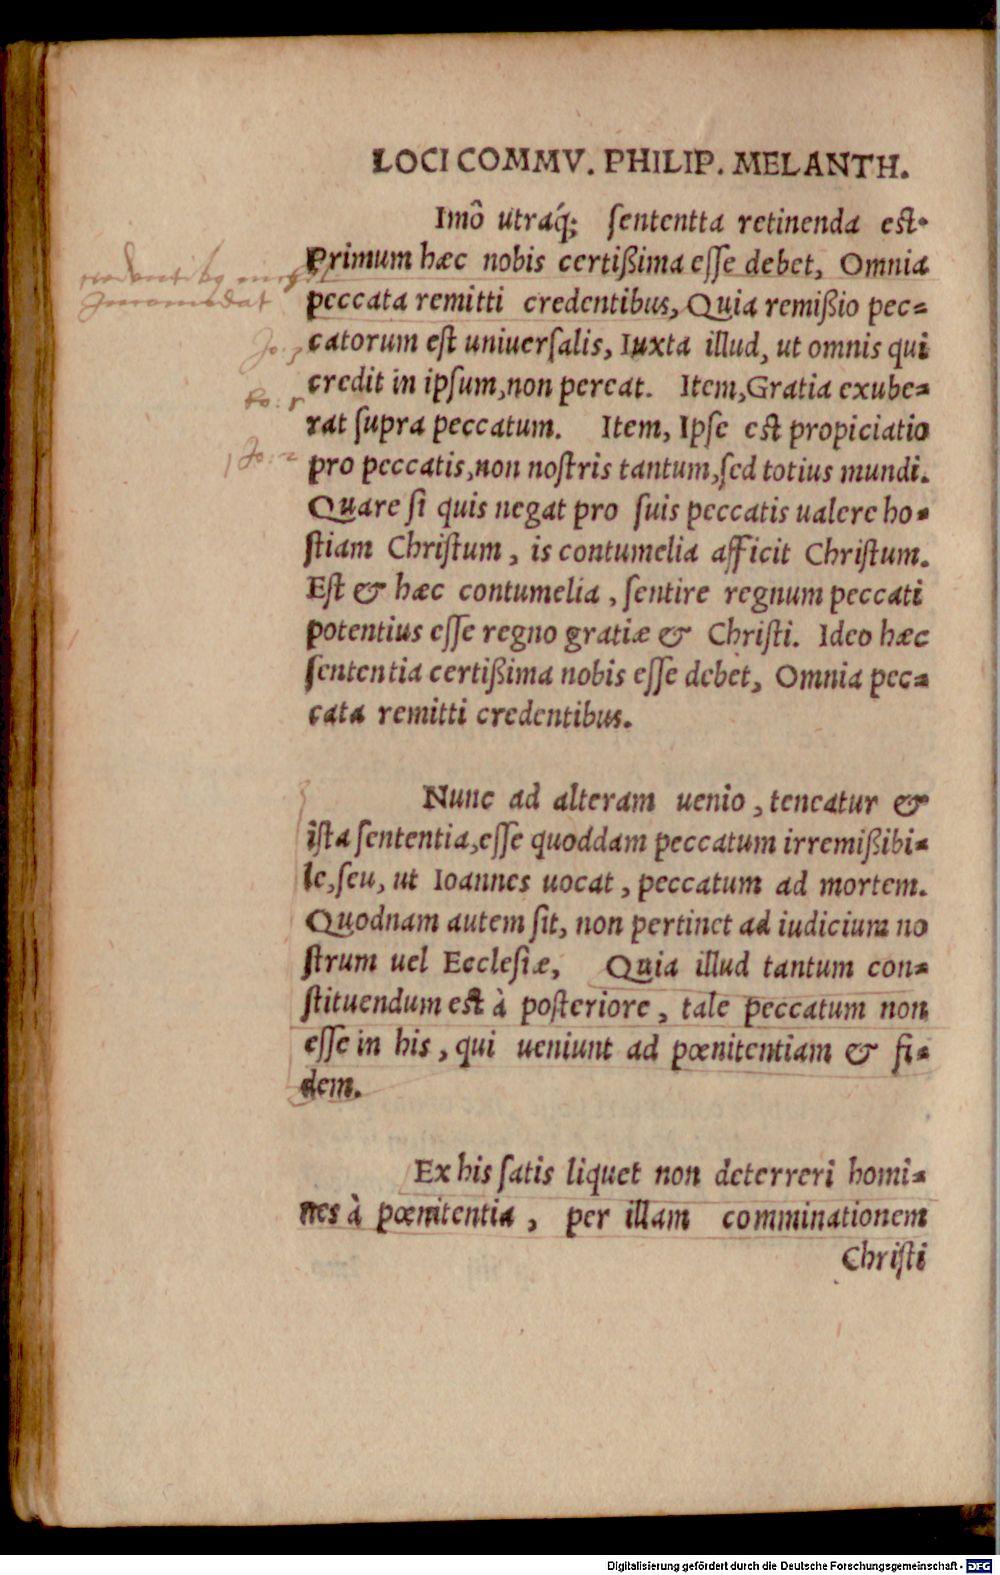 LOCI COMMV. PHILIP. MELANTH.
Imô utraq́; sententta retinenda est.
Primum hæc nobis certißima eſſe debet, Omnia
credentibus
Incomodat
peccata remitti credentibus, Quia remißio pec=
Jo: 3
catorum eſt uniuerſalis, Iuxta illud, ut omnis qui
credit in ipſum, non pereat. Item, Gratia exube=
Ro: 5
rat ſupra peccatum. Item, Ipſe est propiciatio
1 Jo: 2
pro peccatis, non noſtris tantum, ſed totius mundi.
Quare ſi quis negat pro ſuis peccatis ualere ho=
ſtiam Chriſtum, is contumelia afficit Chriſtum.
Eſt & hæc contumelia, ſentire regnum peccati
potentius eſſe regno gratiæ & Chriſti. Ideo hæc
ſententia certißima nobis eſſe debet, Omnia pec=
cata remitti credentibus.
Nunc ad alteram uenio, teneatur &
iſta ſententia, eſſe quoddam peccatum irremißibi=
le, ſeu, ut Ioannes uocat, peccatum ad mortem.
Quodnam autem ſit, non pertinet ad iudicium no
ſtrum uel Eccleſiæ, Quia illud tantum con=
ſtituendum est à poſteriore, tale peccatum non
eſſe in his, qui ueniunt ad pœnitentiam & fi=
dem.
Ex his ſatis liquet non deterreri homi=
nes à pœnitentia, per illam comminationem
Chriſti
Digitalisierung gefördert durch die Deutsche Forschungsgemeinschaft - DFG